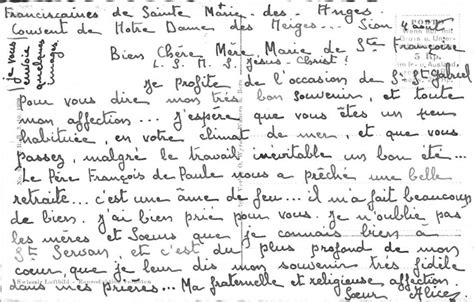 Franciscaines de Sainte Marie-des-Anges.
Couvent de Notre Dame des Neiges... Sion 4 août
je vous envoie quelques images
Bien Chère Mère Marie de Ste Françoise
L. S. M. S. Jésus-Christ!
je profite de l'occasion de St Gabriel
pour vous dire mon très bon souvenir, et toute
mon affection... j'espère que vous êtes un peu
habituée, en votre climat de mer, et que vous
passez, malgré le travail inévitable un bon été...
Le Père François de Paule nous a prêché une belle
retraite... c'est une âme de feu... il m'a fait beaucoup
de bien. j'ai bien prié pour vous. je n'oublie pas
les mères et Soeurs que je connais bien à
St Servan, et c'est du plus profond de mon
coeur, que je leur dis mon souvenir très fidèle
dans mes prières... Ma fraternelle et religieuse affection
Soeur Alice